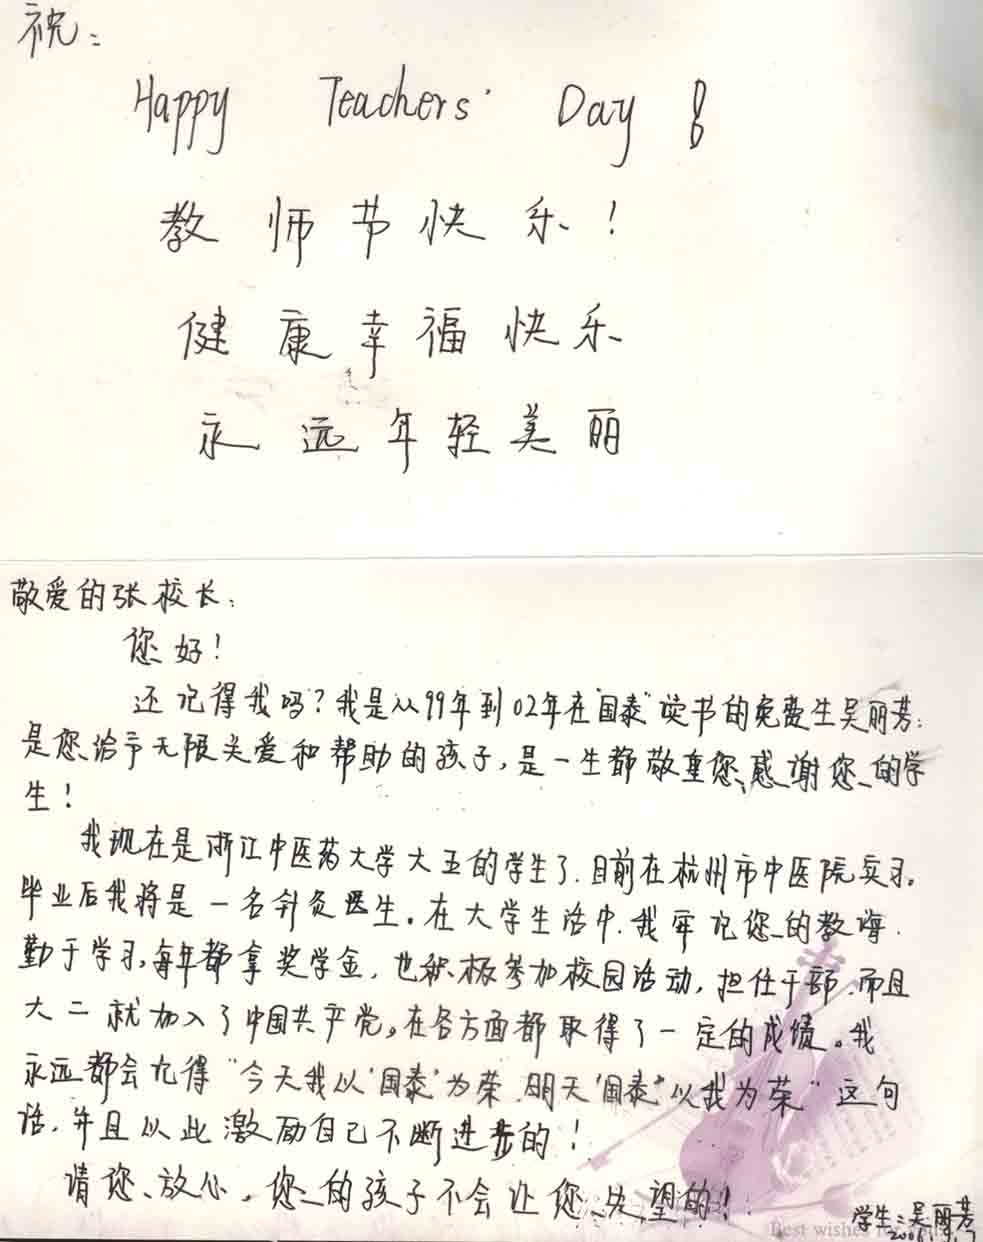 祝：
Happy Teachers' Day !
教师节快乐！
健康幸福快乐
永远年轻美丽
敬爱的张校长：
您好！
还记得我吗？我是从99年到02年在"国泰"读书的免费生吴丽芳：
是您给予无限关爱和帮助的孩子，是一生都敬重您、感谢您的学
生！
我现在是浙江中医药大学大五的学生了.目前在杭州市中医院实习。
毕业后我将是一名针灸医生。在大学生活中.我牢记您的教诲.
勤于学习，每年都拿奖学金，也积极参加校园活动，担任干部.而且
大二就加入了中国共产党。在各方面都取得了一定的成绩。我
永远都会记得"今天我以'国泰'为荣.明天'国泰'以我为荣"这句
话.并且以此激励自己不断进步的！
请您放心，您的孩子不会让您失望的！
学生：吴丽芳
2006.9.7
Best wishes for